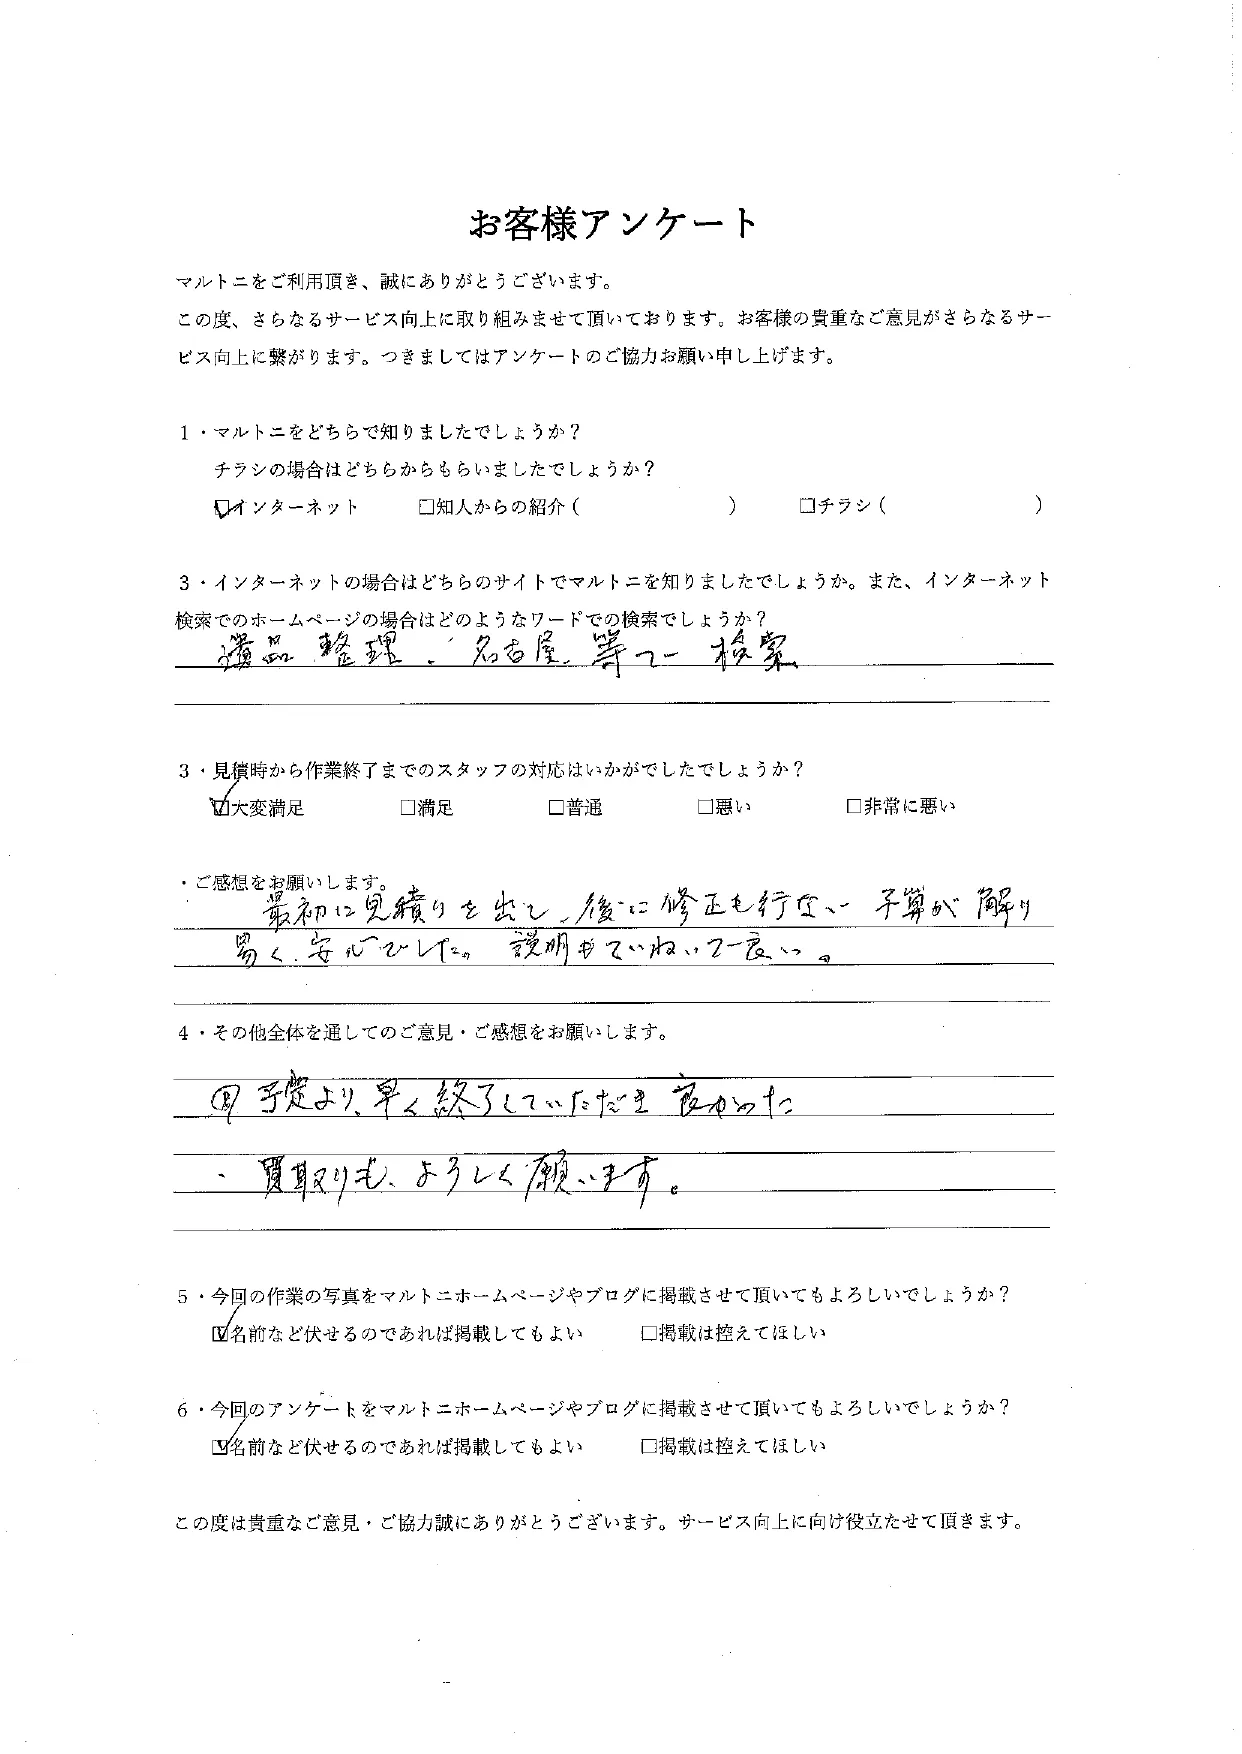 お客様アンケート
マルトニをご利用頂き、誠にありがとうございます。
この度、さらなるサービス向上に取り組みませて頂いております。お客様の貴重なご意見がさらなるサー
ビス向上に繋がります。つきましてはアンケートのご協力お願い申し上げます。
1・マルトニをどちらで知りましたでしょうか？
チラシの場合はどちらからもらいましたでしょうか？
☑インターネット □知人からの紹介（ ） □チラシ（ ）
3・インターネットの場合はどちらのサイトでマルトニを知りましたでしょうか。また、インターネット
検索でのホームページの場合はどのようなワードでの検索でしょうか？
遺品整理、名古屋、等で検索
3・見積時から作業終了までのスタッフの対応はいかがでしたでしょうか？
☑大変満足 □満足 □普通 □悪い □非常に悪い
・ご感想をお願いします。
最初に見積りを出て、後に修正も行ない予算が解り
易く、安心でした。説明もていねいで良い。
4・その他全体を通してのご意見・ご感想をお願いします。
予定より、早く終了していただき良かった
・買取りも、よろしく願います。
5・今回の作業の写真をマルトニホームページやブログに掲載させて頂いてもよろしいでしょうか？
☑名前など伏せるのであれば掲載してもよい □掲載は控えてほしい
6・今回のアンケートをマルトニホームページやブログに掲載させて頂いてもよろしいでしょうか？
☑名前など伏せるのであれば掲載してもよい □掲載は控えてほしい
この度は貴重なご意見・ご協力誠にありがとうございます。サービス向上に向け役立たせて頂きます。